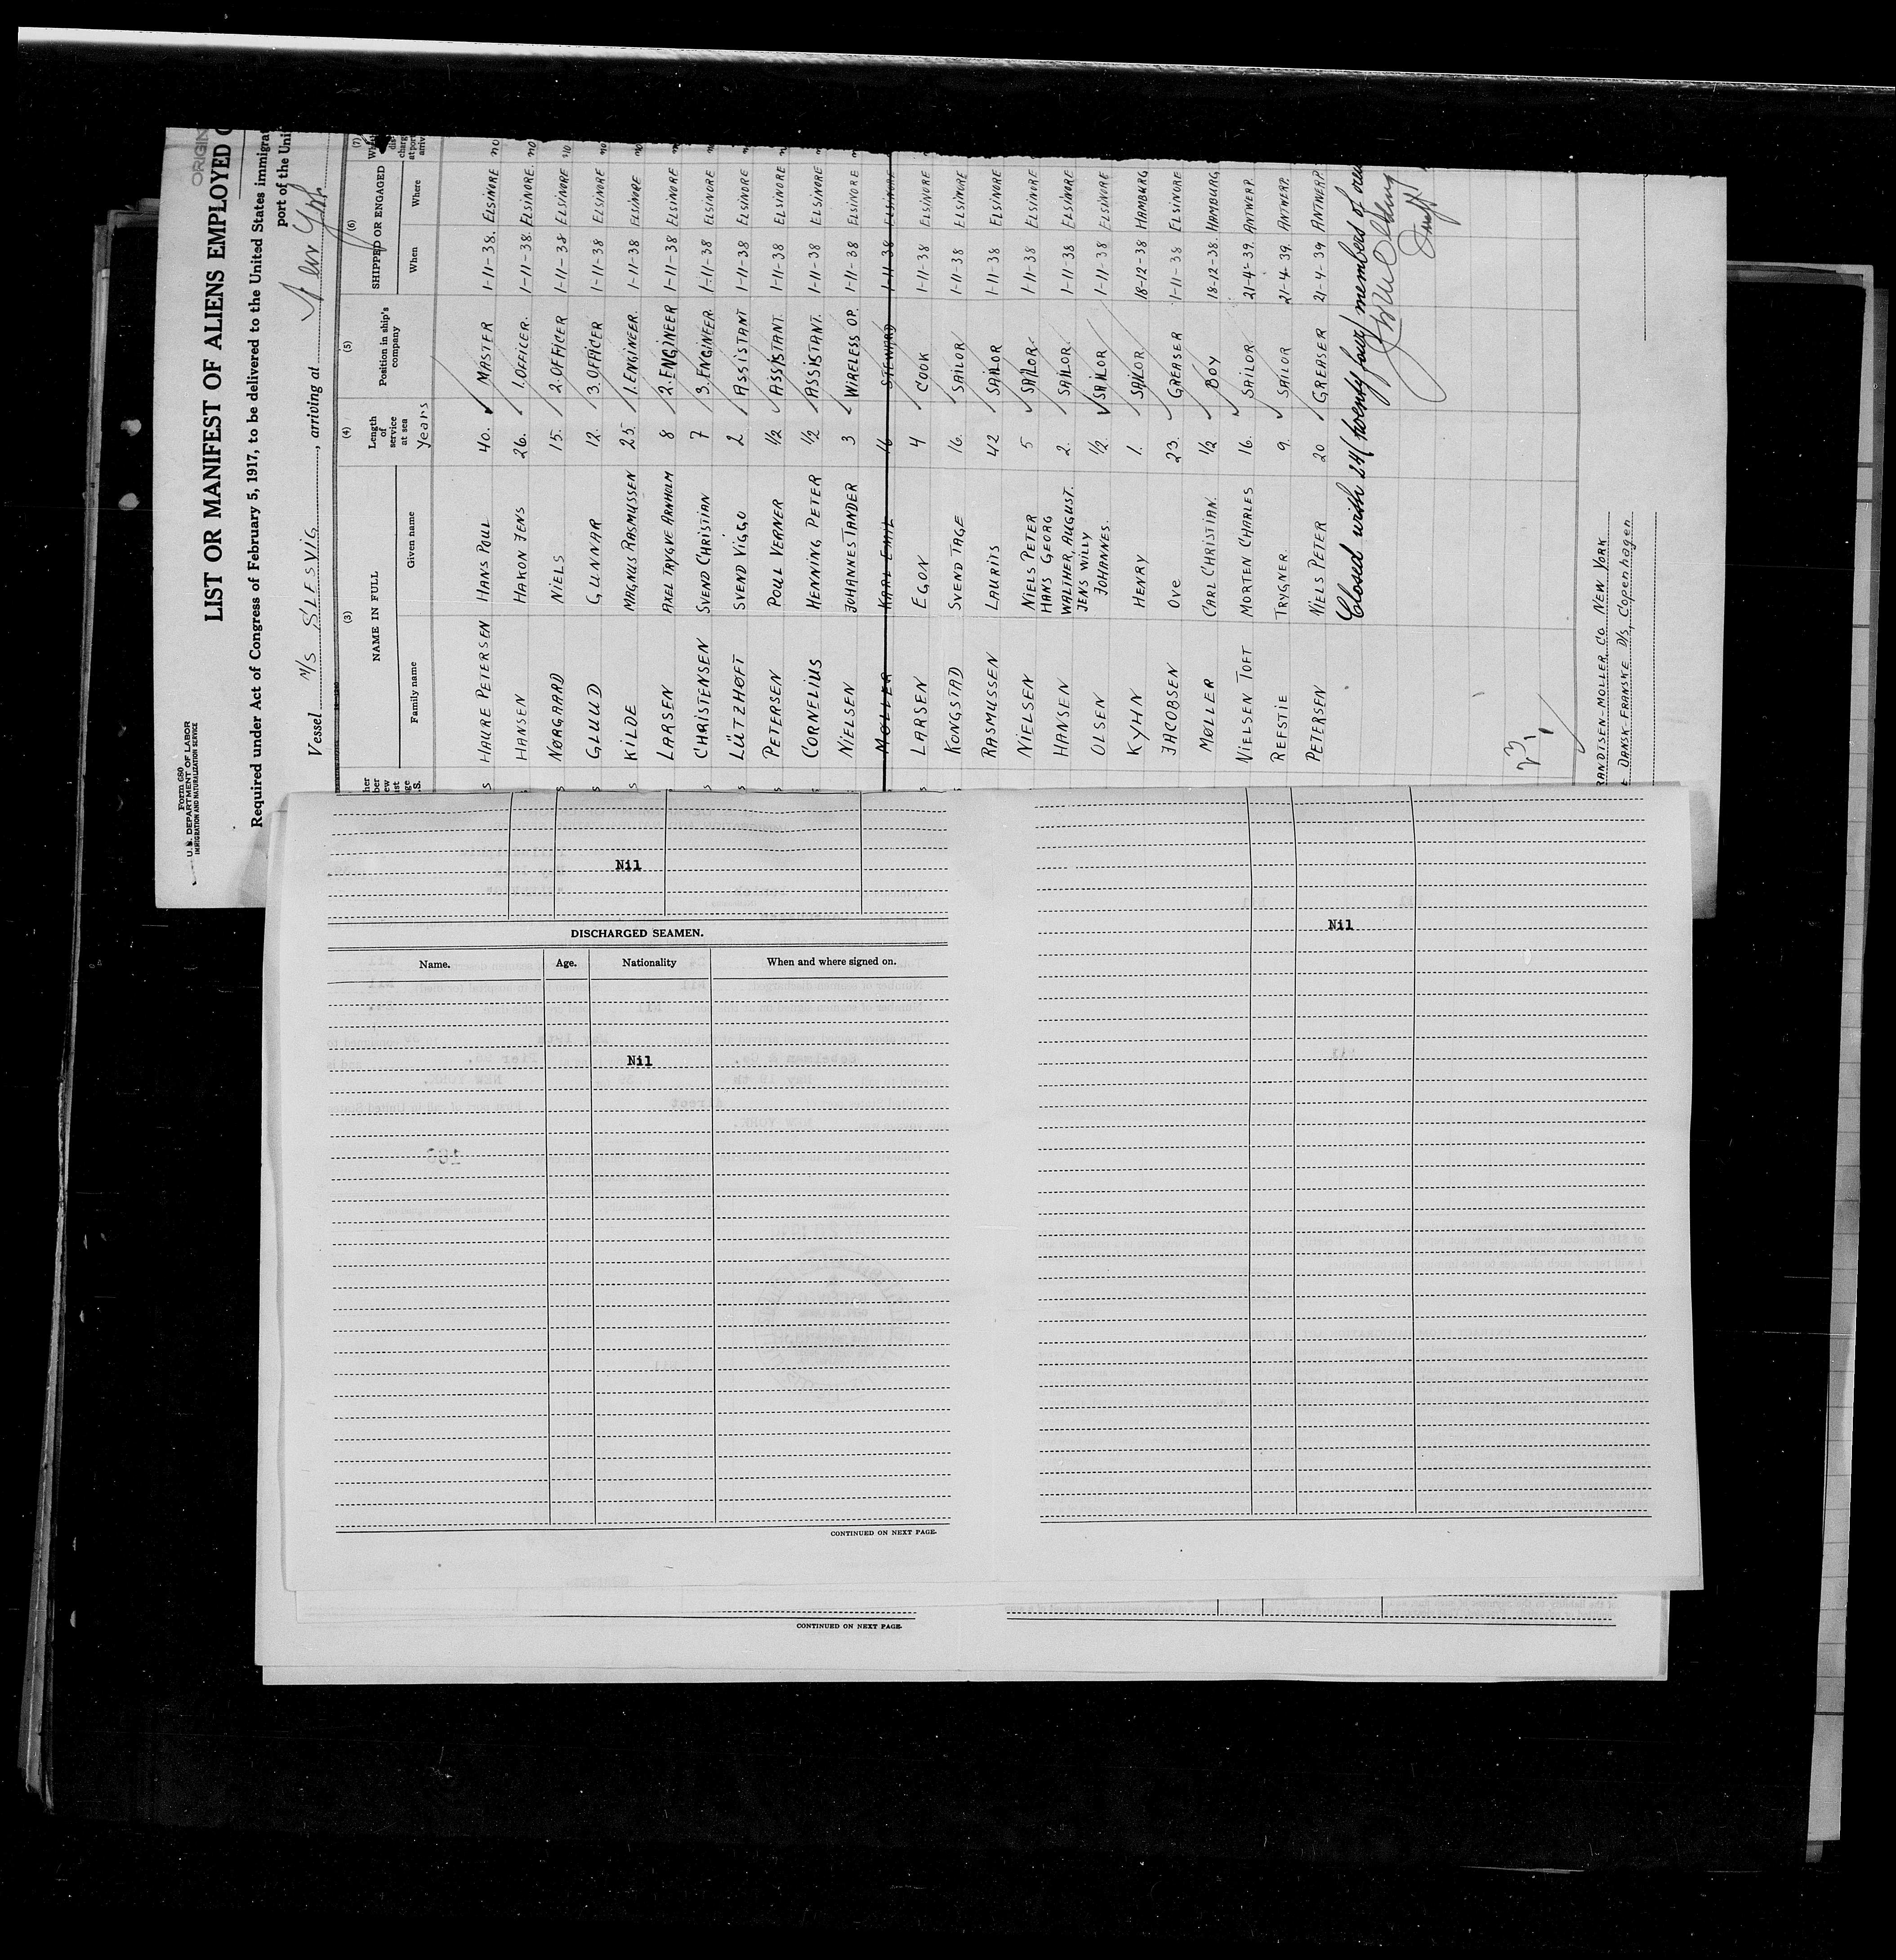 ORIGIN
Form 680
U.S. DEPARTMENT OF LABOR
IMMIGRATION AND NATURALIZATION SERVICE
LIST OR MANIFEST OF ALIENS EMPLOYED
Required under Act of Congress of February 5, 1917, to be delivered to the United States immigra
port of the Uni
Vessel M/S SLESVIG, arriving at New York
(3) (4) (5) (6) (7)
NAME IN FULL Length of service at sea Position in ship's company SHIPPED OR ENGAGED
Family name Given name Years When Where
HAURE PETERSEN HANS POUL 40. MASTER 1-11-38. ELSINORE no
HANSEN HAKON JENS 26. 1. OFFICER. 1-11-38. ELSINORE no
NØRGAARD NIELS 15. 2. OFFICER 1-11-38 ELSINORE no
GLUUD GUNNAR 12. 3. OFFICER 1-11-38 ELSINORE no
KILDE MAGNUS RASMUSSEN 25. 1. ENGINEER. 1-11-38 ELSINORE no
LARSEN AXEL TRYGVE ARNHOLM 8 2. ENGINEER 1-11-38 ELSINORE
CHRISTENSEN SVEND CHRISTIAN 7 3. ENGINEER. 1-11-38 ELSINORE
LÜTZHØFT SVEND VIGGO 2 ASSISTANT 1-11-38 ELSINORE
PETERSEN POUL VERNER 1/2 ASSISTANT. 1-11-38 ELSINORE
CORNELIUS HENNING PETER 1/2 ASSISTANT. 1-11-38 ELSINORE
NIELSEN JOHANNES TANDER 3 WIRELESS OP. 1-11-38 ELSINORE
MØLLER KARL EMIL 16 STEWARD 1-11-38 ELSINORE
LARSEN EGON 4 COOK 1-11-38 ELSINORE
KONGSTAD SVEND TAGE 16. SAILOR 1-11-38 ELSINORE
RASMUSSEN LAURITS 42 SAILOR 1-11-38 ELSINORE
NIELSEN NIELS PETER HANS GEORG 5 SAILOR. 1-11-38 ELSINORE
HANSEN WALTHER, AUGUST. 2. SAILOR. 1-11-38 ELSINORE
OLSEN JENS WILLY JOHANNES. 1/2 SAILOR 1-11-38 ELSINORE
KYHN HENRY 1. SAILOR 18-12-38 HAMBURG
JACOBSEN OVE 23. GREASER 1-11-38 ELSINORE
MØLLER CARL CHRISTIAN. 1/2 BOY 18-12-38. HAMBURG
NIELSEN TOFT MORTEN CHARLES 16. SAILOR 21-4-39. ANTWERP.
REFSTIE TRYGNER. 9. SAILOR 21-4-39. ANTWERP.
PETERSEN NIELS PETER 20 GREASER 21-4-39 ANTWERP.
Closed with 24 (twenty four) members of crew
23
RANDTSEN-MOLLER, CO NEW YORK
E DANSK-FRANSKE D/S, Copenhagen
Nil
DISCHARGED SEAMEN.
Name. Age. Nationality When and where signed on.
Nil
CONTINUED ON NEXT PAGE.
Nil
CONTINUED ON NEXT PAGE.